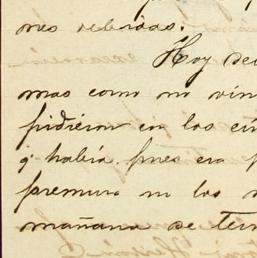 nes debidas.
Hoy de
mas como no vin
pidieron en los
q. habia pues era
premura ni los
mañana se ter